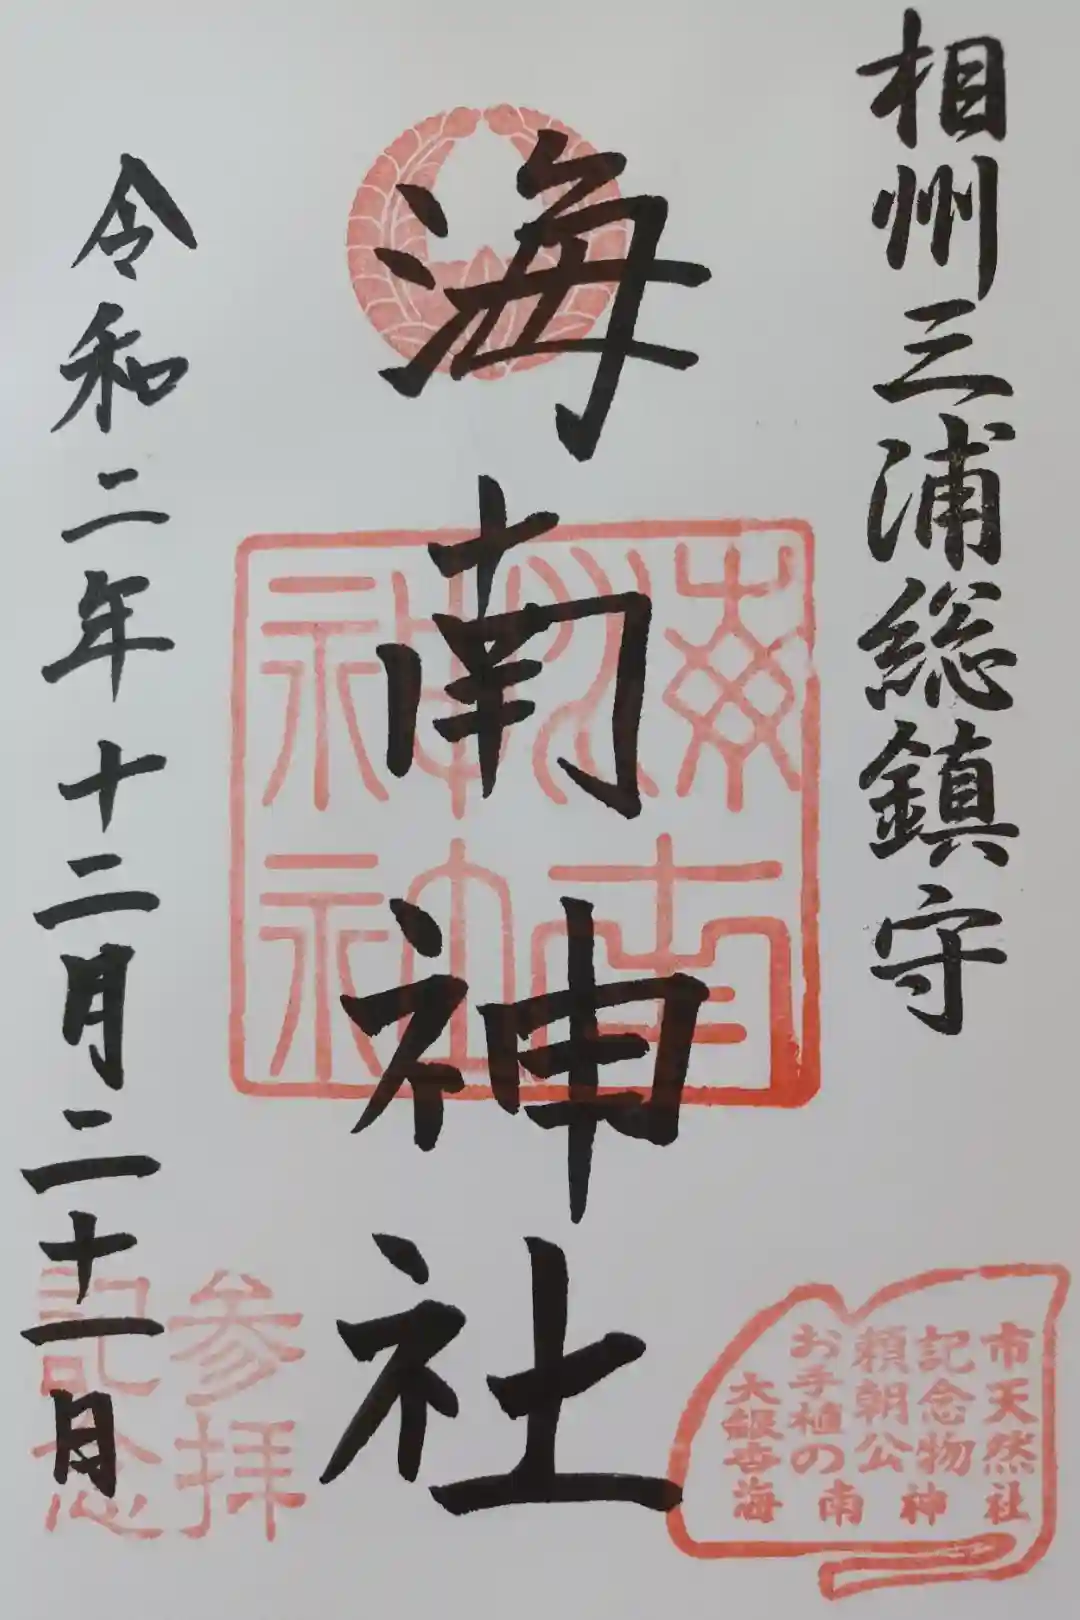 相州三浦総鎮守
海南神社
海南
神社
令和二年十二月二十一日
参拝
記念
市天然
記念物
頼朝公
お手植の
大銀杏
海南神社